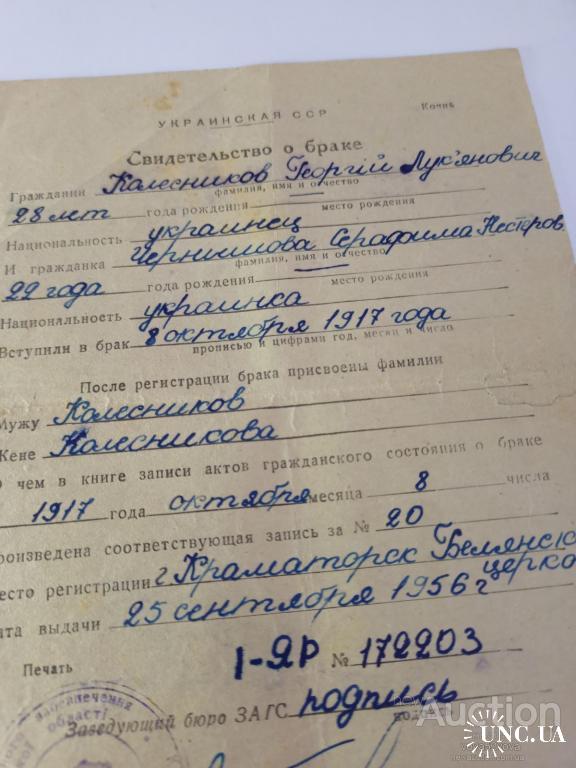 УКРАИНСКАЯ ССР
Копия
Свидетельство о браке
Гражданин Колесников Георгій Лук'янович
фамилия, имя и отчество
28 лет года рождения
место рождения
Национальность украинец
И гражданка Чернишова Серафима Нестеров
фамилия, имя и отчество
22 года года рождения
место рождения
Национальность украинка
Вступили в брак 8 октября 1917 года
прописью и цифрами год, месяц и число
После регистрации брака присвоены фамилии
Мужу Колесников
Жене Колесникова
О чем в книге записи актов гражданского состояния о браке
1917 года октября месяца 8 числа
произведена соответствующая запись за № 20
есто регистрации г. Краматорск Белянск
церко
та выдачи 25 сентября 1956 г
I-ЯР № 172203
Печать
Заведующий бюро ЗАГС подпись
забезпечення
області
Auction
UNC.UA